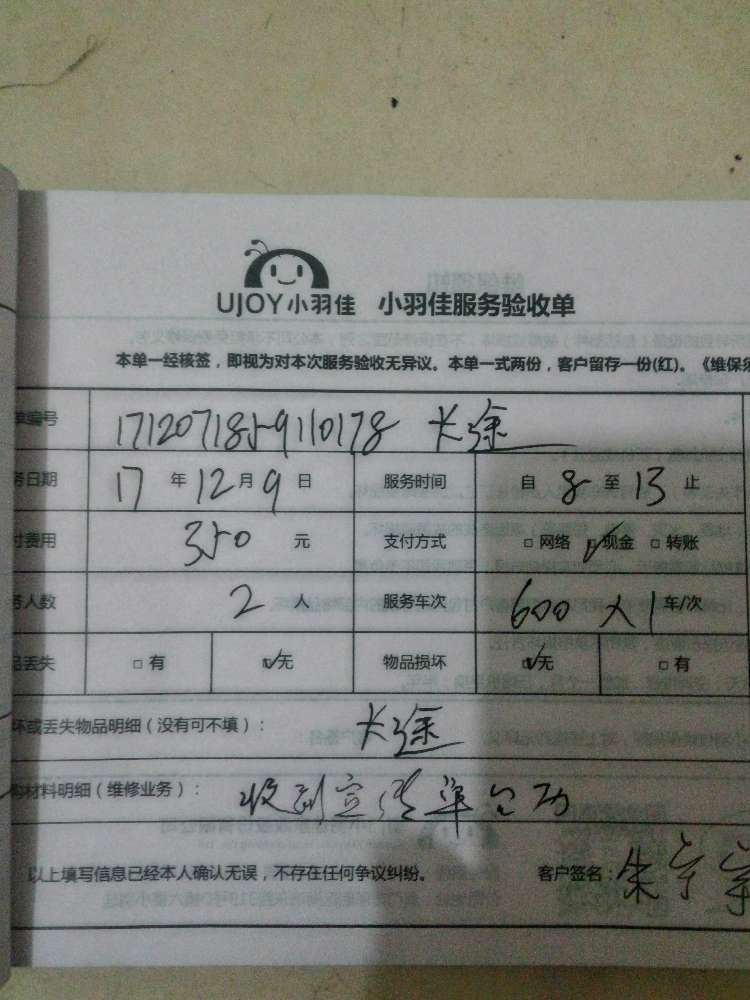 UJOY小羽佳 小羽佳服务验收单
本单一经核签，即视为对本次服务验收无异议。本单一式两份，客户留存一份(红)。《维保
编号 1712071859110178 长途
务日期 17 年 12 月 9 日 服务时间 自 8 至 13 止
付费用 350 元 支付方式 □ 网络 ☑ 现金 □ 转账
务人数 2 人 服务车次 600 大1 车/次
品丢失 □ 有 ☑ 无 物品损坏 ☑ 无 □ 有
坏或丢失物品明细（没有可不填）： 长途
材料明细（维修业务）： 收到宣传单
以上填写信息已经本人确认无误，不存在任何争议纠纷。 客户签名： 朱宇